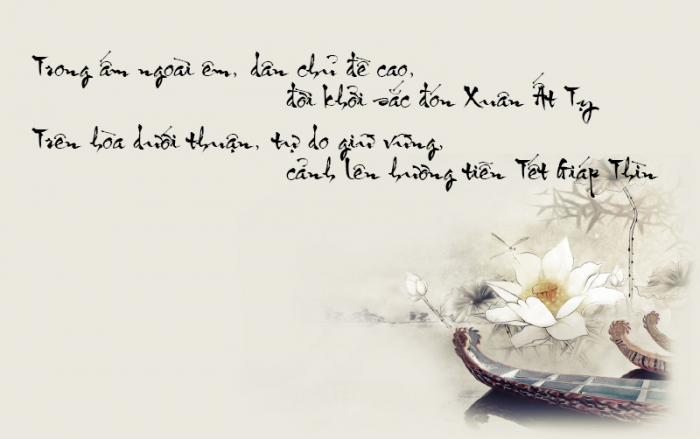 Trong ấm ngoài êm, dân chủ đề cao,
đời khởi sắc đón Xuân Ất Tỵ
Trên hòa dưới thuận, tự do giữ vững,
cảnh lên hường tiễn Tết Giáp Thìn